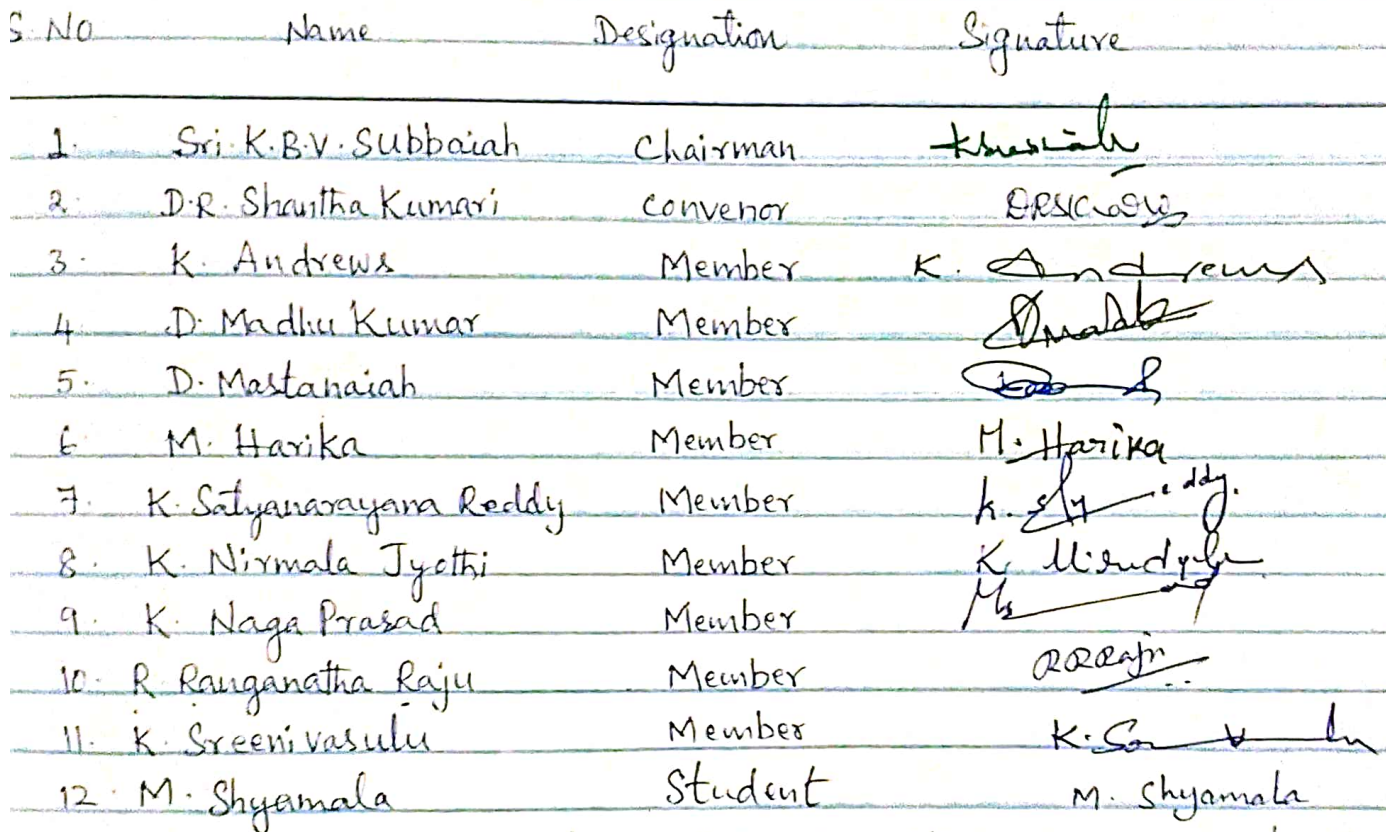 S. No Name Designation Signature
1. Sri. K.B.V. Subbaiah Chairman
2. D.R. Shantha Kumari Convenor
3. K. Andrews Member K. Andrews
4. D. Madhu Kumar Member
5. D. Mastanaiah Member
6 M. Harika Member M. Harika
7. K. Satyanarayana Reddy Member
8. K. Nirmala Jyothi Member
9. K. Naga Prasad Member
10. R Ranganatha Raju Member RRRaju
11. K. Sreenivasulu Member
12. M. Shyamala Student M. Shyamala